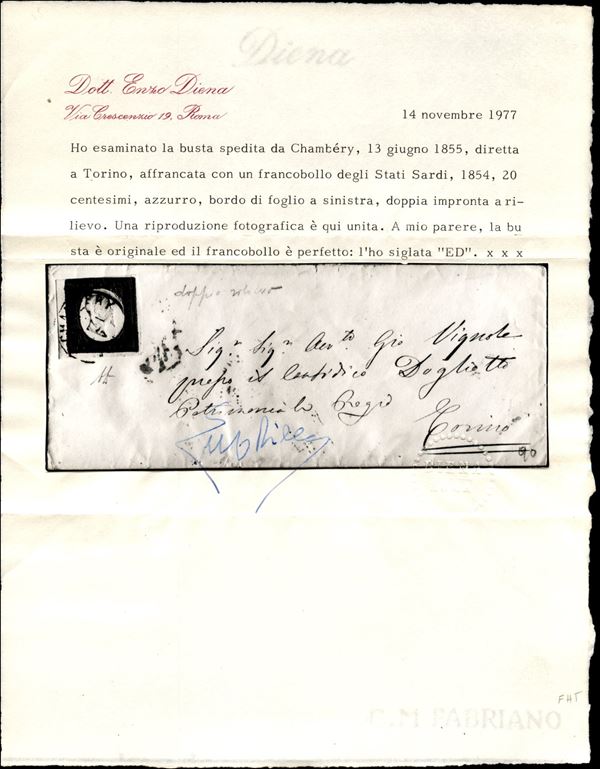 Diena
Dott. Enzo Diena
Via Crescenzio 19, Roma
14 novembre 1977
Ho esaminato la busta spedita da Chambéry, 13 giugno 1855, diretta
a Torino, affrancata con un francobollo degli Stati Sardi, 1854, 20
centesimi, azzurro, bordo di foglio a sinistra, doppia impronta a ri-
lievo. Una riproduzione fotografica è qui unita. A mio parere, la bu
sta è originale ed il francobollo è perfetto: l'ho siglata "ED". x x x
doppio rilievo
Sig.r Sig.r Gio Vignola
Dogliotto
Regio
Torino
90
FHT
C.M FABRIANO